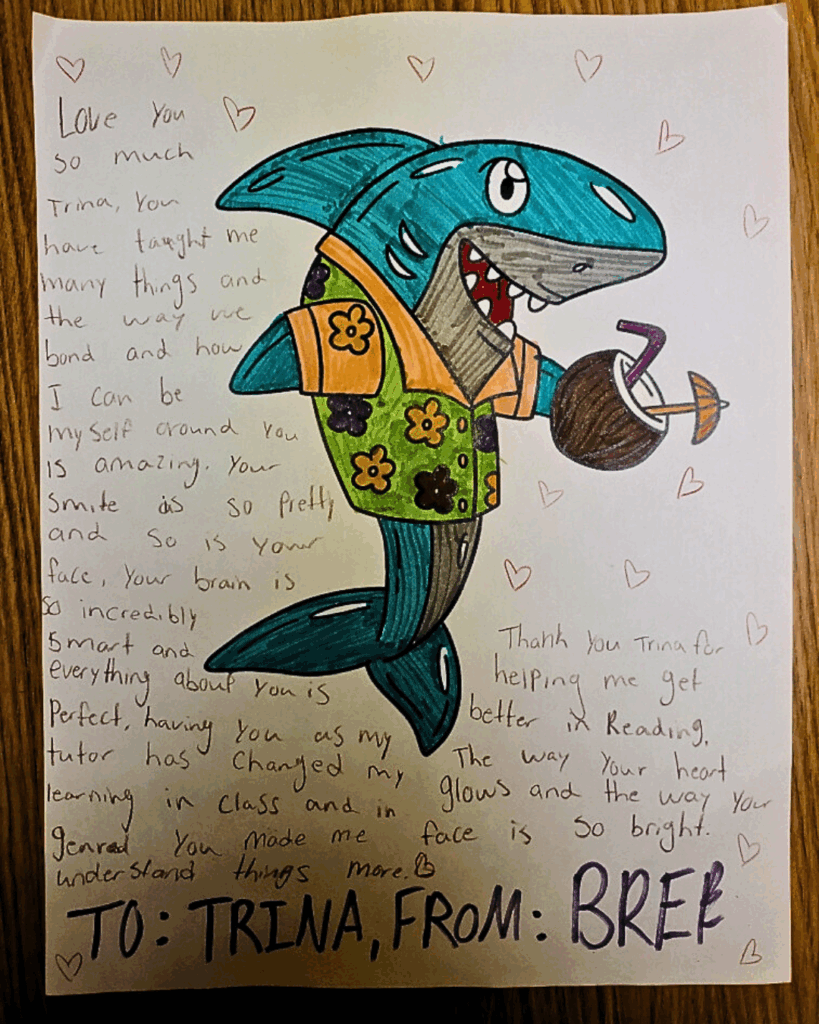 Love You
so much
Trina, You
have taught me
many things and
the way we
bond and how
I can be
myself around you
is amazing. Your
smile is so pretty
and so is your
face, Your brain is
so incredibly
smart and
everything about you is
Perfect, having you as my
tutor has changed my
learning in class and in
genral You made me
understand things more.
Thank You Trina for
helping me get
better in Reading,
The way Your heart
glows and the way your
face is so bright.
TO: TRINA, FROM: BREE